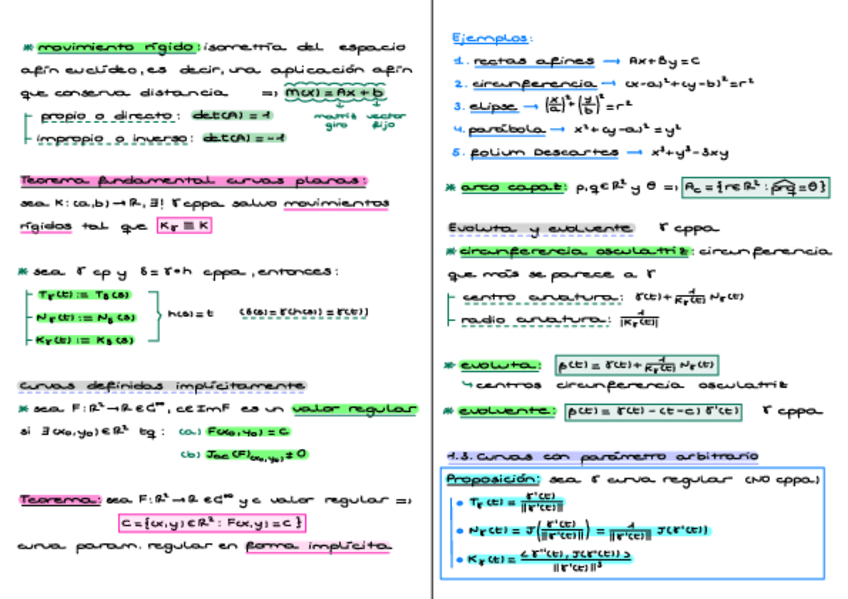 * movimiento rígido: isometría del espacio
afín euclídeo, es decir, una aplicación afín
que conserva distancia => M(x) = Ax + b
propio o directo: det(A) = 1
matriz giro
vector fijo
impropio o inverso: det(A) = -1
Teorema fundamental curvas planas:
sea K: (a,b) → R, ∃! γ cppa salvo movimientos
rígidos tal que Kγ ≡ K
* sea γ cp y δ = γ∘h cppa, entonces:
Tγ(t) := Tδ(s)
Nγ(t) := Nδ(s)
Kγ(t) := Kδ(s)
h(s) = t (δ(s) = γ(h(s)) = γ(t))
Curvas definidas implícitamente
* sea F: R² → R ∈ C^∞, c ∈ Im F es un valor regular
si ∃ (x₀,y₀) ∈ R² tq: (a) F(x₀,y₀) = c
(b) Jac (F)(x₀,y₀) ≠ 0
Teorema: sea F: R² → R ∈ C^∞ y c valor regular =>
C = {(x,y) ∈ R² : F(x,y) = c}
curva param. regular en forma implícita
Ejemplos:
1. rectas afines → Ax + By = C
2. circunferencia → (x-a)² + (y-b)² = r²
3. elipse → (x/a)² + (y/b)² = r²
4. parábola → x² + (y-a)² = y²
5. Folium Descartes → x³ + y³ - 3xy
* arco capaz: p,q ∈ R² y θ => Ac = {r ∈ R² : prq = θ}
Evoluta y evolvente γ cppa
* circunferencia osculatriz: circunferencia
que más se parece a γ
centro curvatura: γ(t) + 1/Kγ(t) Nγ(t)
radio curvatura: 1/|Kγ(t)|
* evoluta: β(t) = γ(t) + 1/Kγ(t) Nγ(t)
↳ centros circunferencia osculatriz
* evolvente: β(t) = γ(t) - (t-c) γ'(t) γ cppa
1.3. Curvas con parámetro arbitrario
Proposición: sea γ curva regular (NO cppa)
• Tγ(t) = γ'(t)/||γ'(t)||
• Nγ(t) = J(γ'(t)/||γ'(t)||) = 1/||γ'(t)|| J(γ'(t))
• Kγ(t) = <γ''(t), J(γ'(t))>/||γ'(t)||³